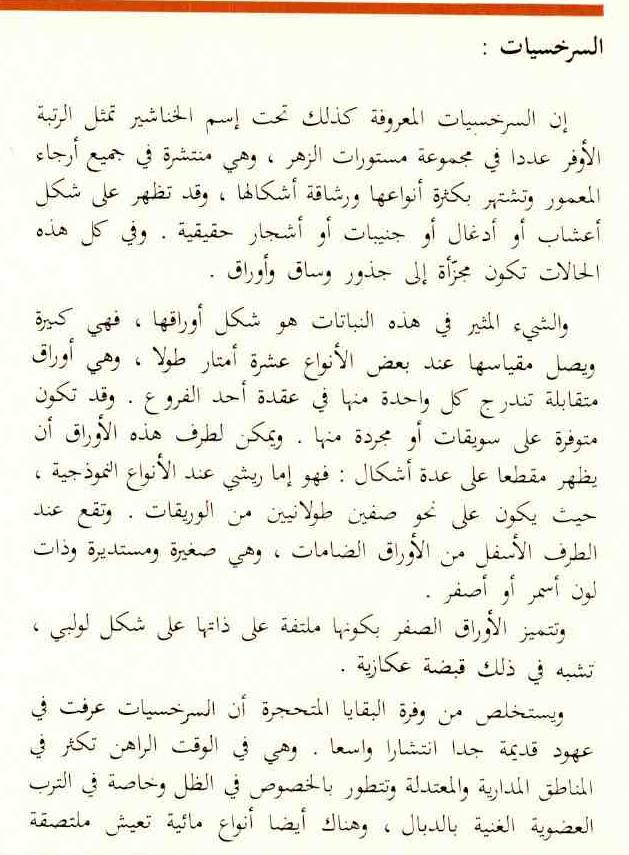 السرخسيات :
إن السرخسيات المعروفة كذلك تحت إسم الخناشير تمثل الرتبة
الأوفر عددا في مجموعة مستورات الزهر ، وهي منتشرة في جميع أرجاء
المعمور وتشتهر بكثرة أنواعها ورشاقة أشكالها ، وقد تظهر على شكل
أعشاب أو أدغال أو جنيبات أو أشجار حقيقية . وفي كل هذه
الحالات تكون مجزّأة إلى جذور وساق وأوراق .
والشيء المثير في هذه النباتات هو شكل أوراقها ، فهي كبيرة
ويصل مقياسها عند بعض الأنواع عشرة أمتار طولا ، وهي أوراق
متقابلة تندرج كل واحدة منها في عقدة أحد الفروع . وقد تكون
متوفرة على سويقات أو مجردة منها . ويمكن لطرف هذه الأوراق أن
يظهر مقطعا على عدة أشكال : فهو إما ريشي عند الأنواع النموذجية ،
حيث يكون على نحو صفين طولانيين من الوريقات . وتقع عند
الطرف الأسفل من الأوراق الضامات ، وهي صغيرة ومستديرة وذات
لون أسمر أو أصفر .
وتتميز الأوراق الصفر بكونها ملتفة على ذاتها على شكل لولبي ،
تشبه في ذلك قبضة عكازية .
ويستخلص من وفرة البقايا المتحجرة أن السرخسيات عرفت في
عهود قديمة جدا انتشارا واسعا . وهي في الوقت الراهن تكثر في
المناطق المدارية والمعتدلة وتتطور بالخصوص في الظل وخاصة في الترب
العضوية الغنية بالدبال ، وهناك أيضا أنواع مائية تعيش ملتصقة